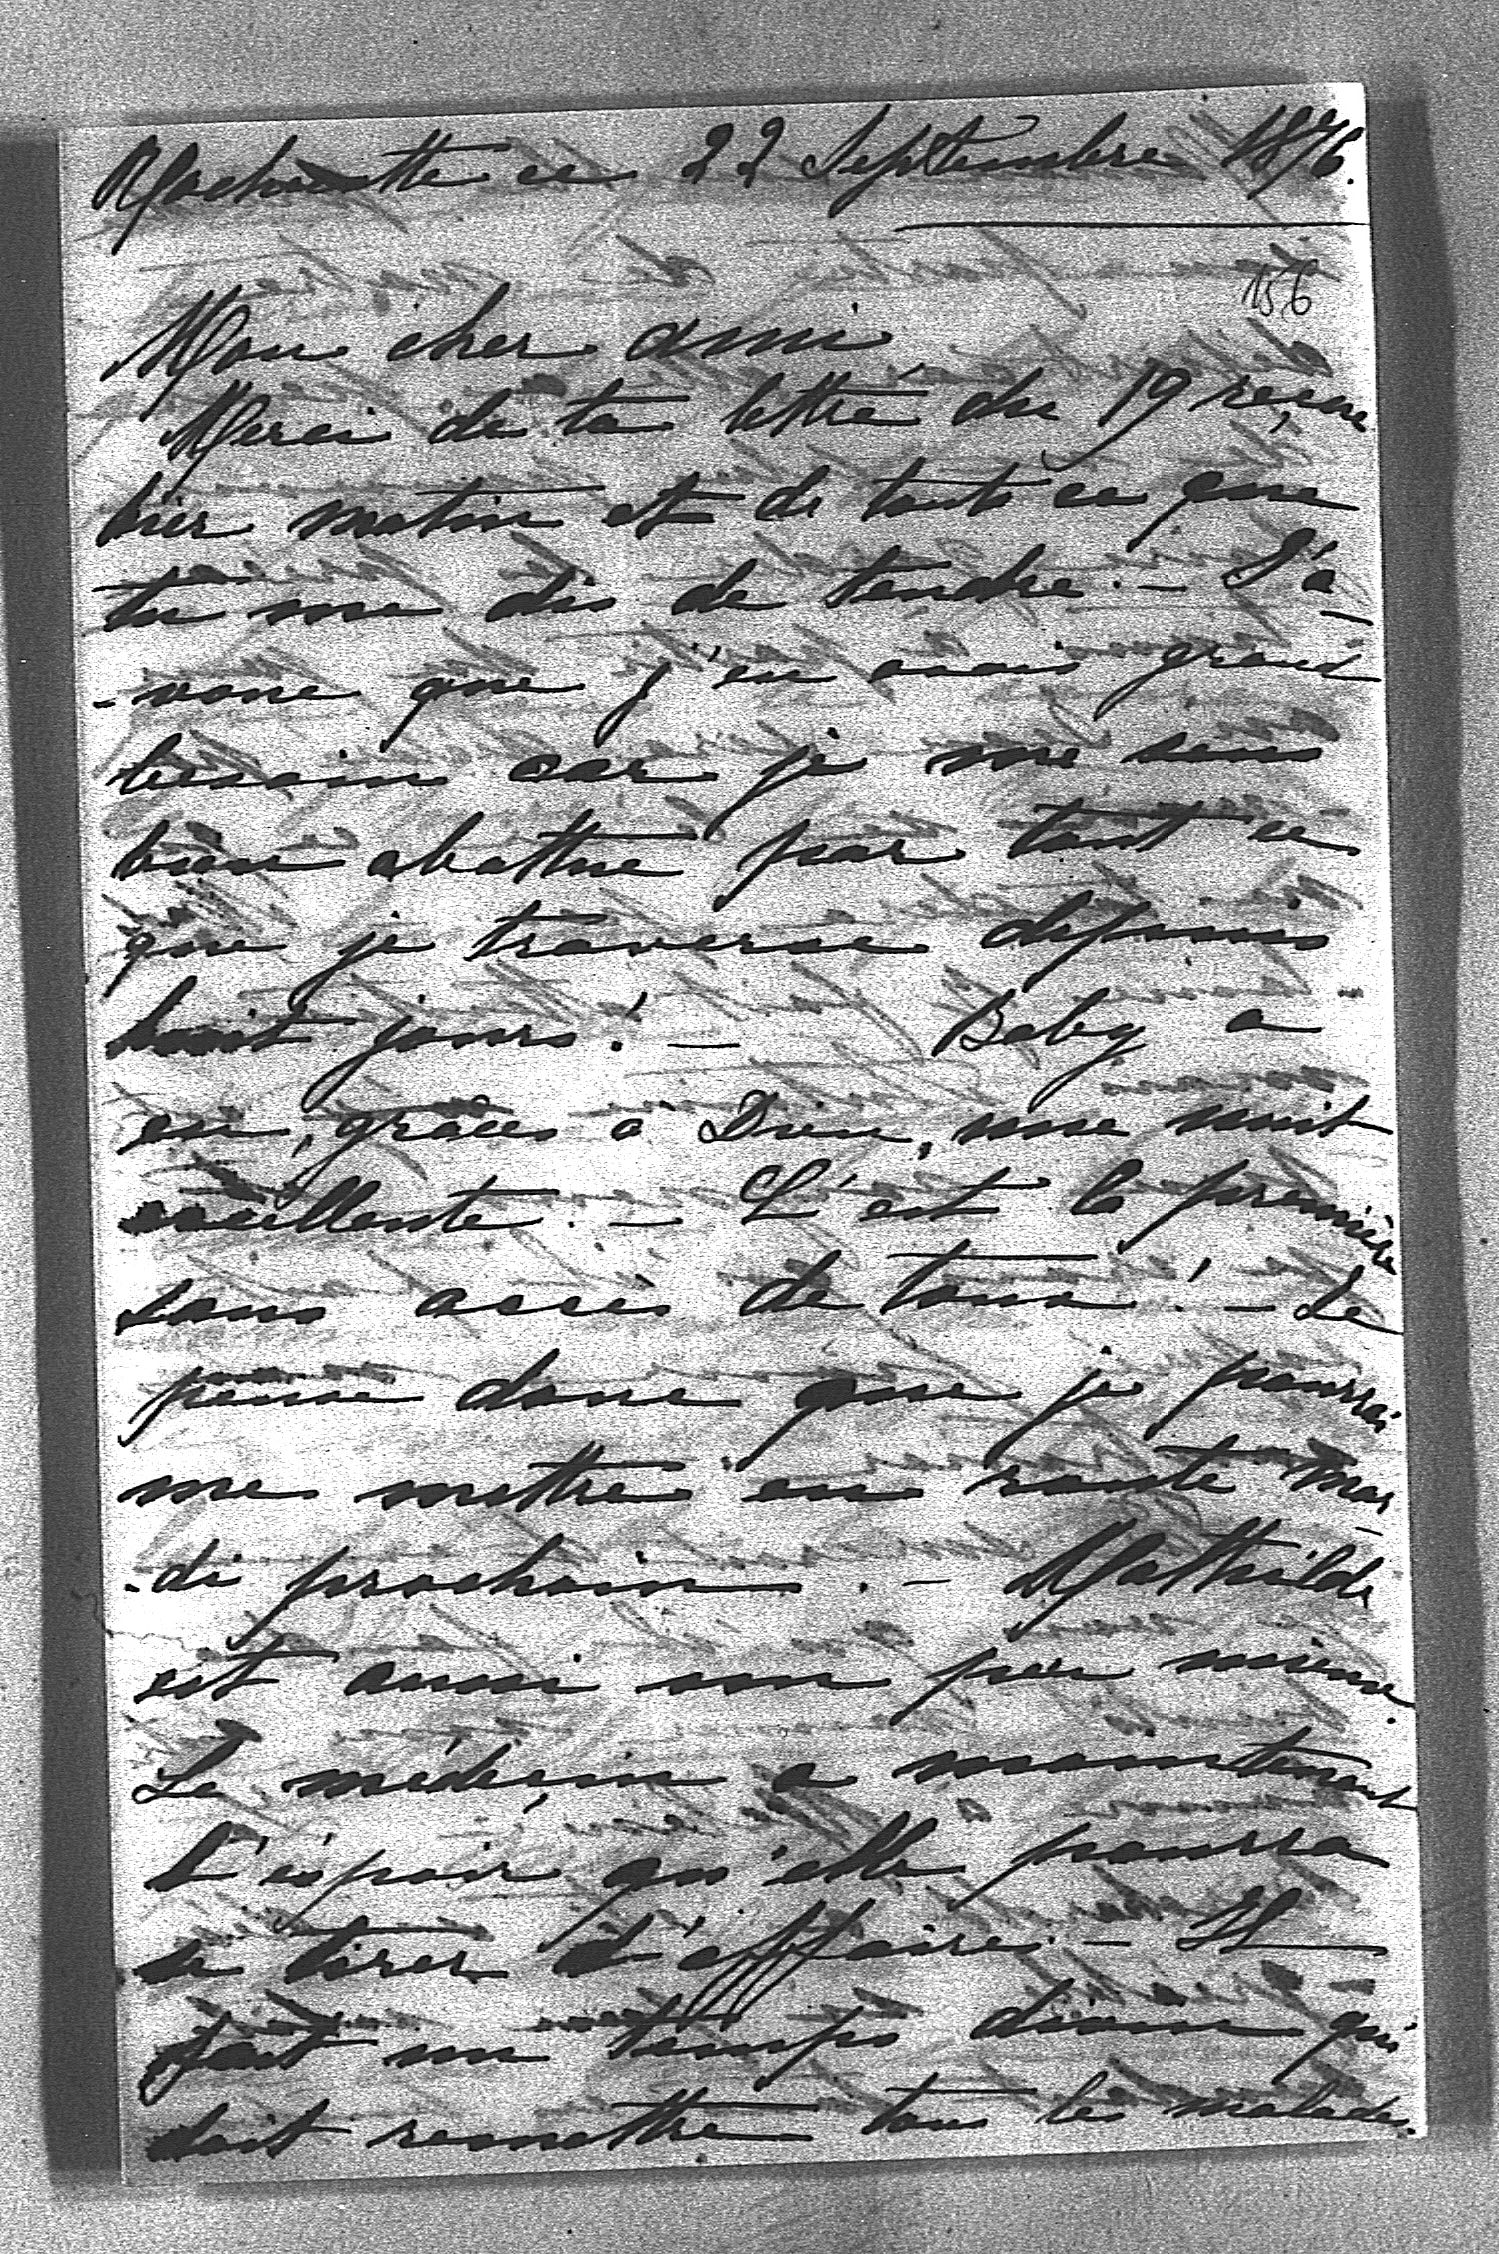 ce 22 Septembre 1876.
156
Mon cher ami,
Merci de ta lettre du 19 reçue
hier matin et de tout ce que
tu me dis de tendre. — J'a-
-voue que j'en avais grand
besoin car je me sens
bien abattue par tout ce
que je traverse depuis
huit jours! — Baby a
eu, grâces à Dieu, une nuit
excellente. — C'est la première
sans accès de toux! — Je
pense donc que je pourrai
me mettre en route mar-
-di prochain. — Mathilde
est aussi un peu mieux.
Le médecin a maintenant
l'espoir qu'elle pourra
se tirer d'affaires. — Il
fait un temps divin qui
doit remettre tous les malades.